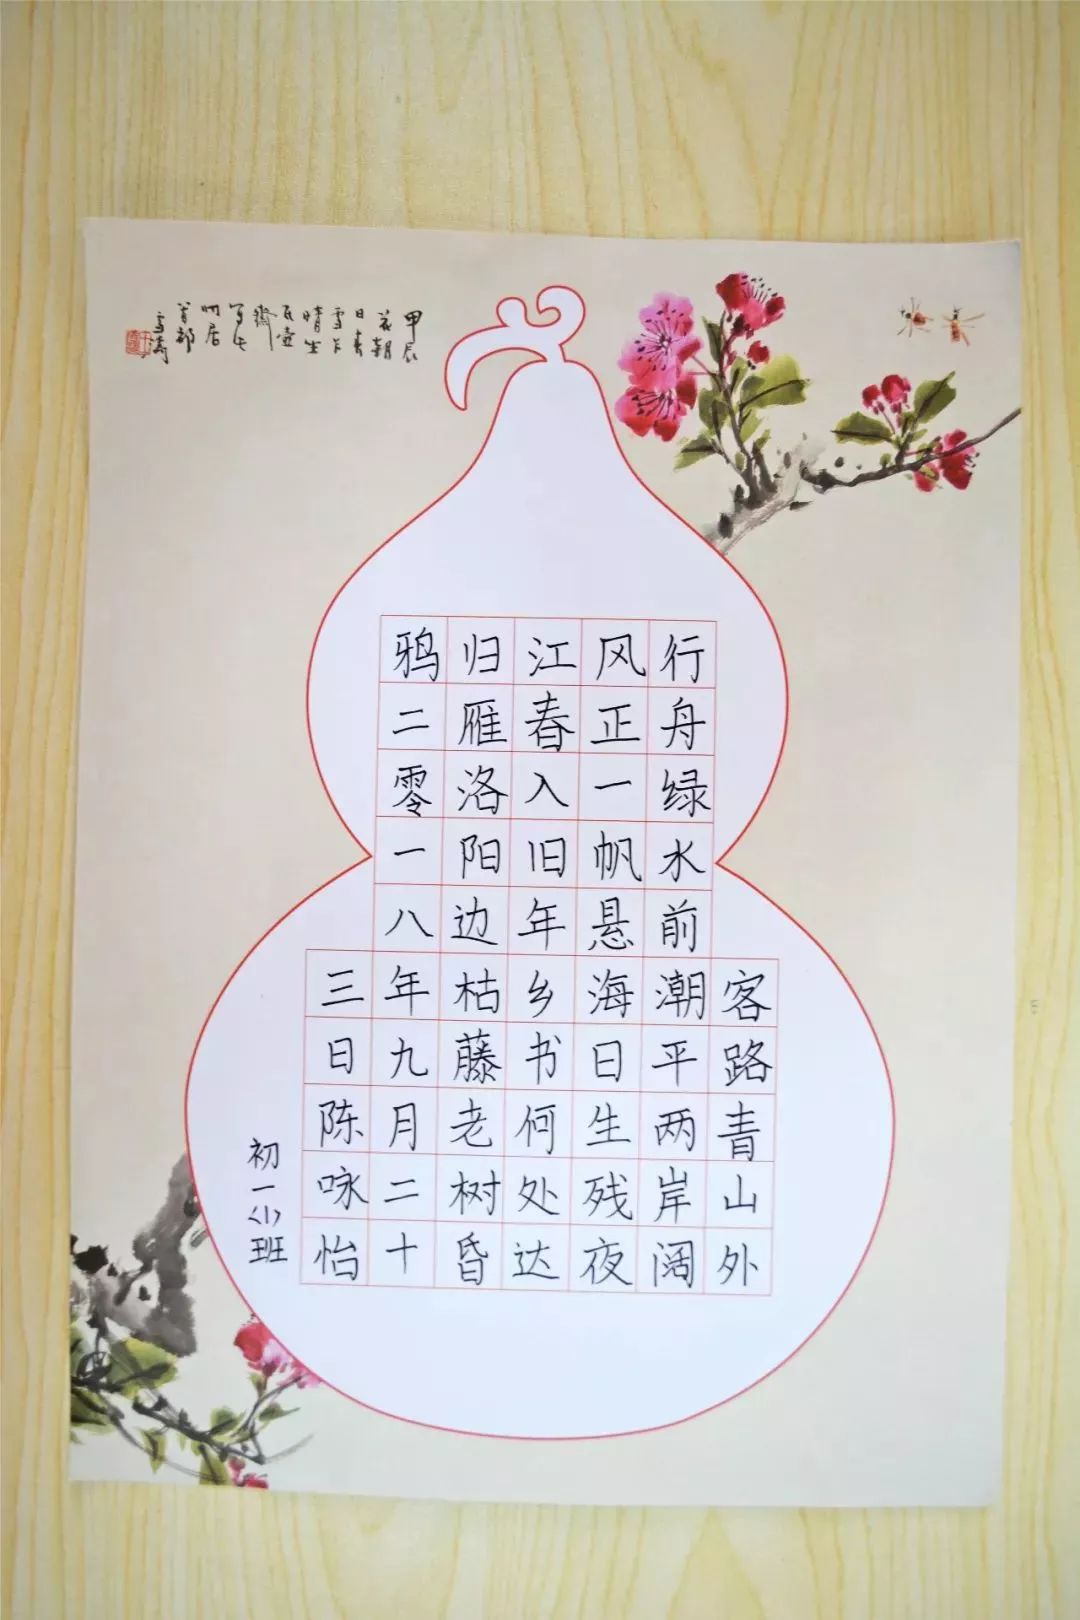 甲辰
花朝
瓦壶
斋
时居
首都
雪涛
客路青山外
行舟绿水前潮平两岸阔
风正一帆悬海日生残夜
江春入旧年乡书何处达
归雁洛阳边枯藤老树昏
鸦二零一八年九月二十
三日陈咏怡
初一〈1〉班